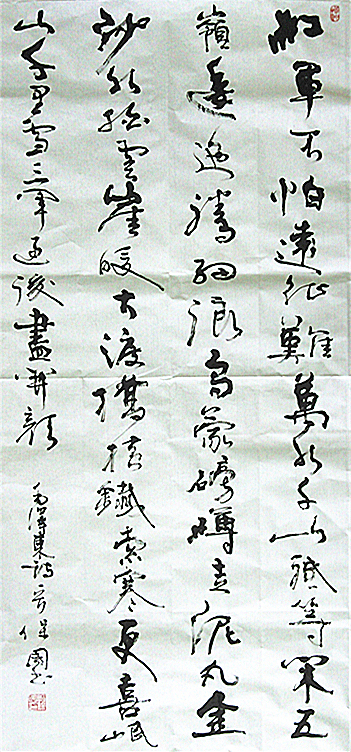 紅軍不怕遠征難萬水千山祇等閑五
嶺逶迤騰細浪烏蒙磅礴走泥丸金
沙水拍雲崖暖大渡橋橫鐵索寒更喜岷
山千里雪三軍過後盡開顏
毛澤東詩 保國書